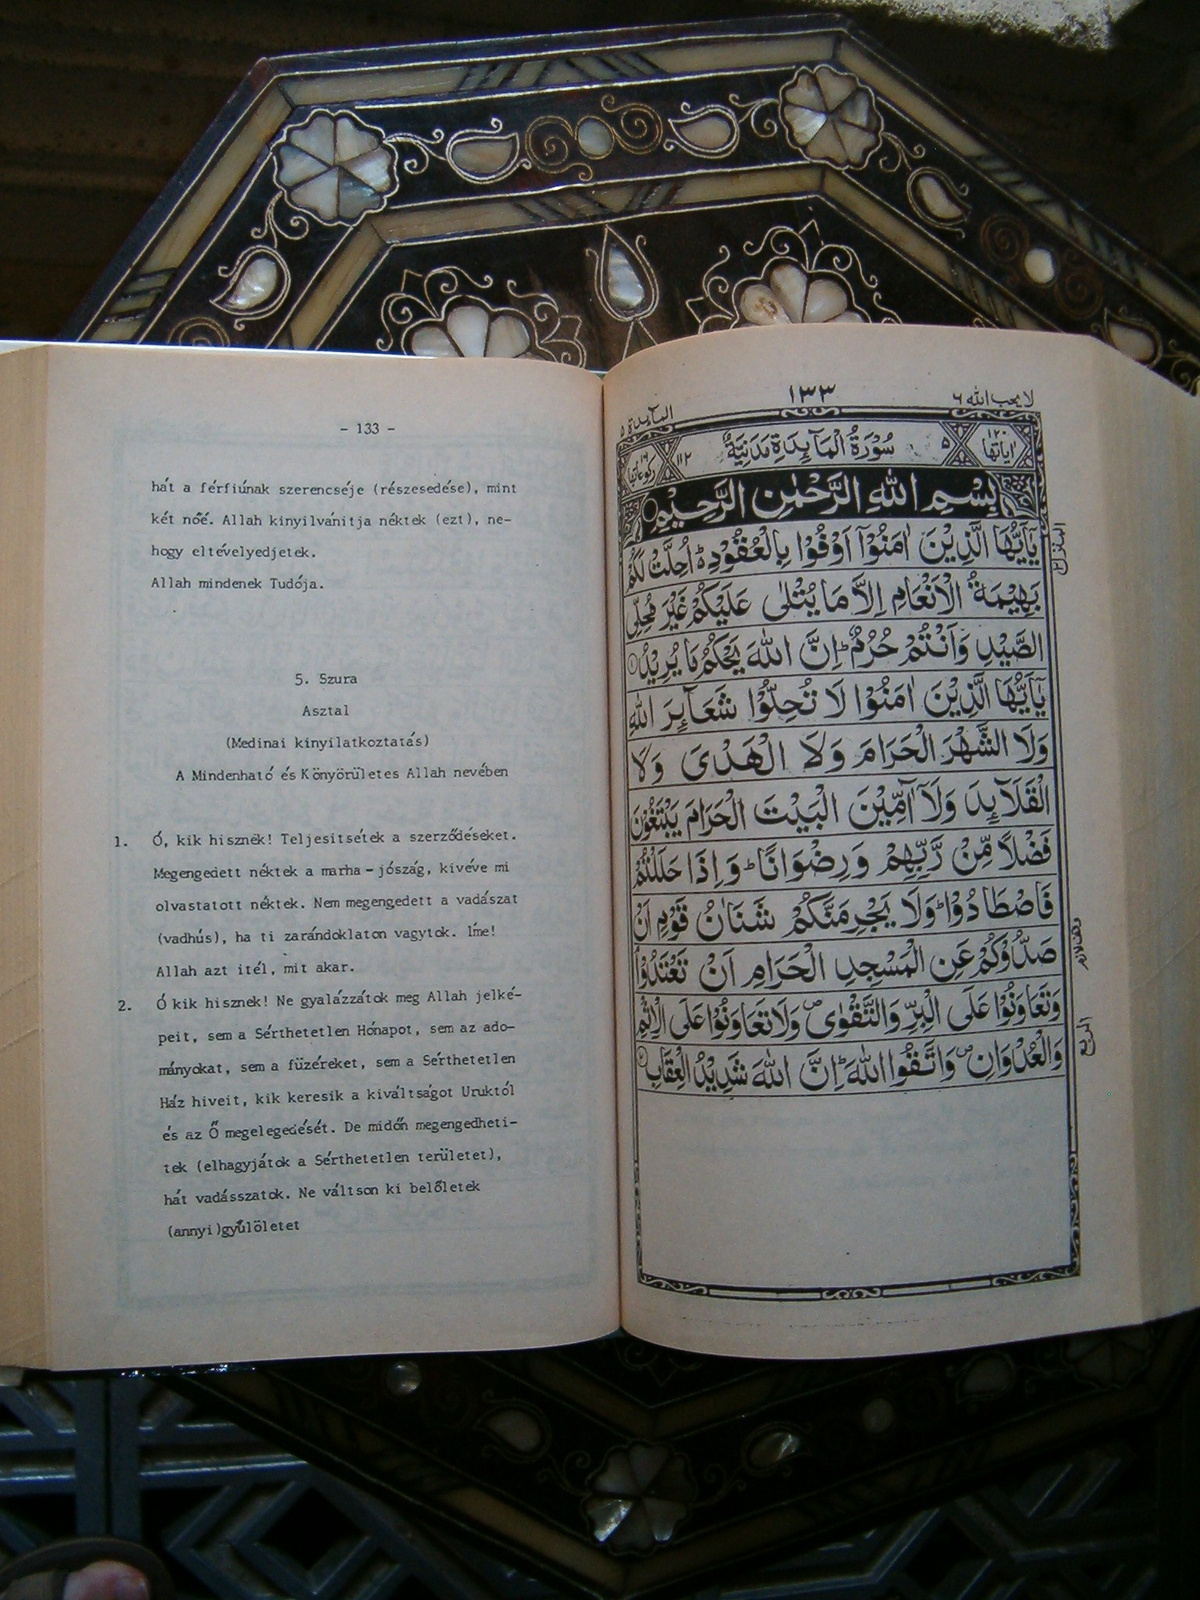 - 133 -
hát a férfiúnak szerencséje (részesedése), mint
két nőé. Allah kinyilvánitja néktek (ezt), ne-
hogy eltévelyedjetek.
Allah mindenek Tudója.
5. Szura
Asztal
(Medinai kinyilatkoztatás)
A Mindenható és Könyörületes Allah nevében
1. Ó, kik hisznek! Teljesitsétek a szerződéseket.
Megengedett néktek a marha-jószág, kivéve mi
olvastatott néktek. Nem megengedett a vadászat
(vadhús), ha ti zarándoklaton vagytok. Íme!
Allah azt itél, mit akar.
2. Ó kik hisznek! Ne gyalázzátok meg Allah jelké-
peit, sem a Sérthetetlen Hónapot, sem az ado-
mányokat, sem a füzéreket, sem a Sérthetetlen
Ház hiveit, kik keresik a kiváltságot Uruktól
és az Ő megelegedését. De midőn megengedheti-
tek (elhagyjátok a Sérthetetlen területet),
hát vadásszatok. Ne váltson ki belőletek
(annyi)gyűlöletet
لا يحب الله ٦
١٣٣
المآيدة ٥
اٰياتها ١٢٠
٥ سُوْرَةُ الْمَآيِدَةِ مَدَنِيَّةٌ ١١٢
ركوعاتها ١٦
بِسْمِ اللهِ الرَّحْمٰنِ الرَّحِيْمِ
يٰٓاَيُّهَا الَّذِيْنَ اٰمَنُوْٓا اَوْفُوْا بِالْعُقُوْدِ ؕ اُحِلَّتْ لَكُمْ
بَهِيْمَةُ الْاَنْعَامِ اِلَّا مَا يُتْلٰى عَلَيْكُمْ غَيْرَ مُحِلِّى
الصَّيْدِ وَاَنْتُمْ حُرُمٌ ؕ اِنَّ اللهَ يَحْكُمُ مَا يُرِيْدُ ١
يٰٓاَيُّهَا الَّذِيْنَ اٰمَنُوْا لَا تُحِلُّوْا شَعَآئِرَ اللهِ
وَلَا الشَّهْرَ الْحَرَامَ وَلَا الْهَدْىَ وَلَا
الْقَلَآئِدَ وَلَآ اٰمِّيْنَ الْبَيْتَ الْحَرَامَ يَبْتَغُوْنَ
فَضْلًا مِّنْ رَّبِّهِمْ وَرِضْوَانًا ؕ وَاِذَا حَلَلْتُمْ
فَاصْطَادُوْا ؕ وَلَا يَجْرِمَنَّكُمْ شَنَاٰنُ قَوْمٍ اَنْ
صَدُّوْكُمْ عَنِ الْمَسْجِدِ الْحَرَامِ اَنْ تَعْتَدُوْا
وَتَعَاوَنُوْا عَلَى الْبِرِّ وَالتَّقْوٰى ص وَلَا تَعَاوَنُوْا عَلَى الْاِثْمِ
وَالْعُدْوَانِ ص وَاتَّقُوا اللهَ ؕ اِنَّ اللهَ شَدِيْدُ الْعِقَابِ ٢
وقف لازم
الربع